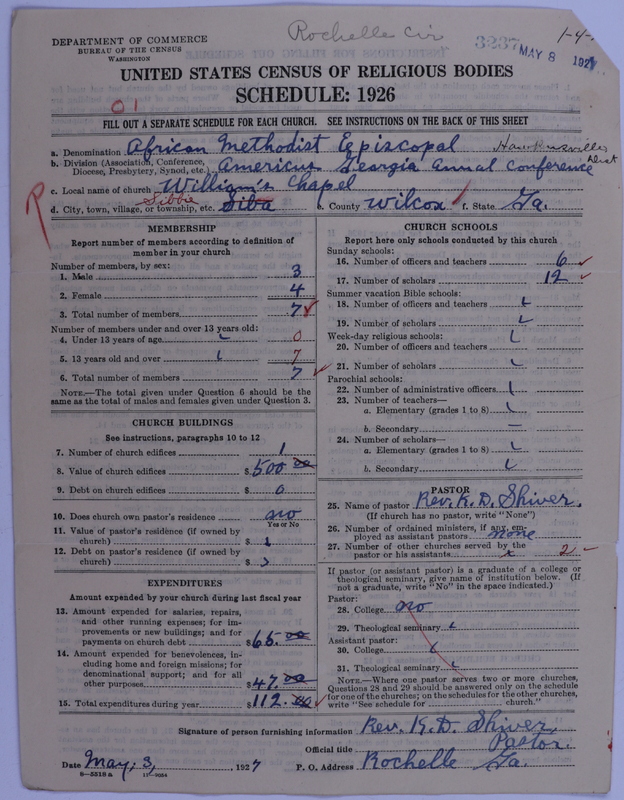 Rochelle Cir
1-4-
DEPARTMENT OF COMMERCE
BUREAU OF THE CENSUS
WASHINGTON
3237
MAY 8 1927
UNITED STATES CENSUS OF RELIGIOUS BODIES
SCHEDULE: 1926
01
FILL OUT A SEPARATE SCHEDULE FOR EACH CHURCH. SEE INSTRUCTIONS ON THE BACK OF THIS SHEET
a. Denomination African Methodist Episcopal Hawkinsville Dist
b. Division (Association, Conference, Diocese, Presbytery, Synod, etc.) Americus Georgia Annual Conference
R
c. Local name of church William's Chapel
Sibbie
d. City, town, village, or township, etc. Siba e. County Wilcox f. State Ga.
MEMBERSHIP
Report number of members according to definition of
member in your church
Number of members, by sex:
1. Male 3
2. Female 4
3. Total number of members 7
Number of members under and over 13 years old:
4. Under 13 years of age 0
5. 13 years old and over 7
6. Total number of members 7
NOTE.—The total given under Question 6 should be the
same as the total of males and females given under Question 3.
CHURCH BUILDINGS
See instructions, paragraphs 10 to 12
7. Number of church edifices 1
8. Value of church edifices $500 00
9. Debt on church edifices $ 0
10. Does church own pastor's residence no
Yes or No
11. Value of pastor's residence (if owned by
church) $
12. Debt on pastor's residence (if owned by
church) $
EXPENDITURES
Amount expended by your church during last fiscal year
13. Amount expended for salaries, repairs,
and other running expenses; for im-
provements or new buildings; and for
payments on church debt $65.00
14. Amount expended for benevolences, in-
cluding home and foreign missions; for
denominational support; and for all
other purposes $47.00
15. Total expenditures during year $112.00
CHURCH SCHOOLS
Report here only schools conducted by this church
Sunday schools:
16. Number of officers and teachers 6
17. Number of scholars 12
Summer vacation Bible schools:
18. Number of officers and teachers
19. Number of scholars
Week-day religious schools:
20. Number of officers and teachers
21. Number of scholars
Parochial schools:
22. Number of administrative officers
23. Number of teachers—
a. Elementary (grades 1 to 8)
b. Secondary —
24. Number of scholars—
a. Elementary (grades 1 to 8)
b. Secondary
PASTOR
25. Name of pastor Rev. K. D. Shiver.
(If church has no pastor, write "None")
26. Number of ordained ministers, if any, em-
ployed as assistant pastors none
27. Number of other churches served by the
pastor or his assistants x 2
If pastor (or assistant pastor) is a graduate of a college or
theological seminary, give name of institution below. (If
not a graduate, write "No" in the space indicated.)
Pastor:
28. College no
29. Theological seminary
Assistant pastor:
30. College
31. Theological seminary
NOTE.—Where one pastor serves two or more churches,
Questions 28 and 29 should be answered only on the schedule
for one of the churches; on the schedules for the other churches,
write "See schedule for church."
Signature of person furnishing information Rev. K. D. Shiver,
Official title Pastor.
Date May, 3, 1927 P. O. Address Rochelle Ga.
8—5518a 11—9054